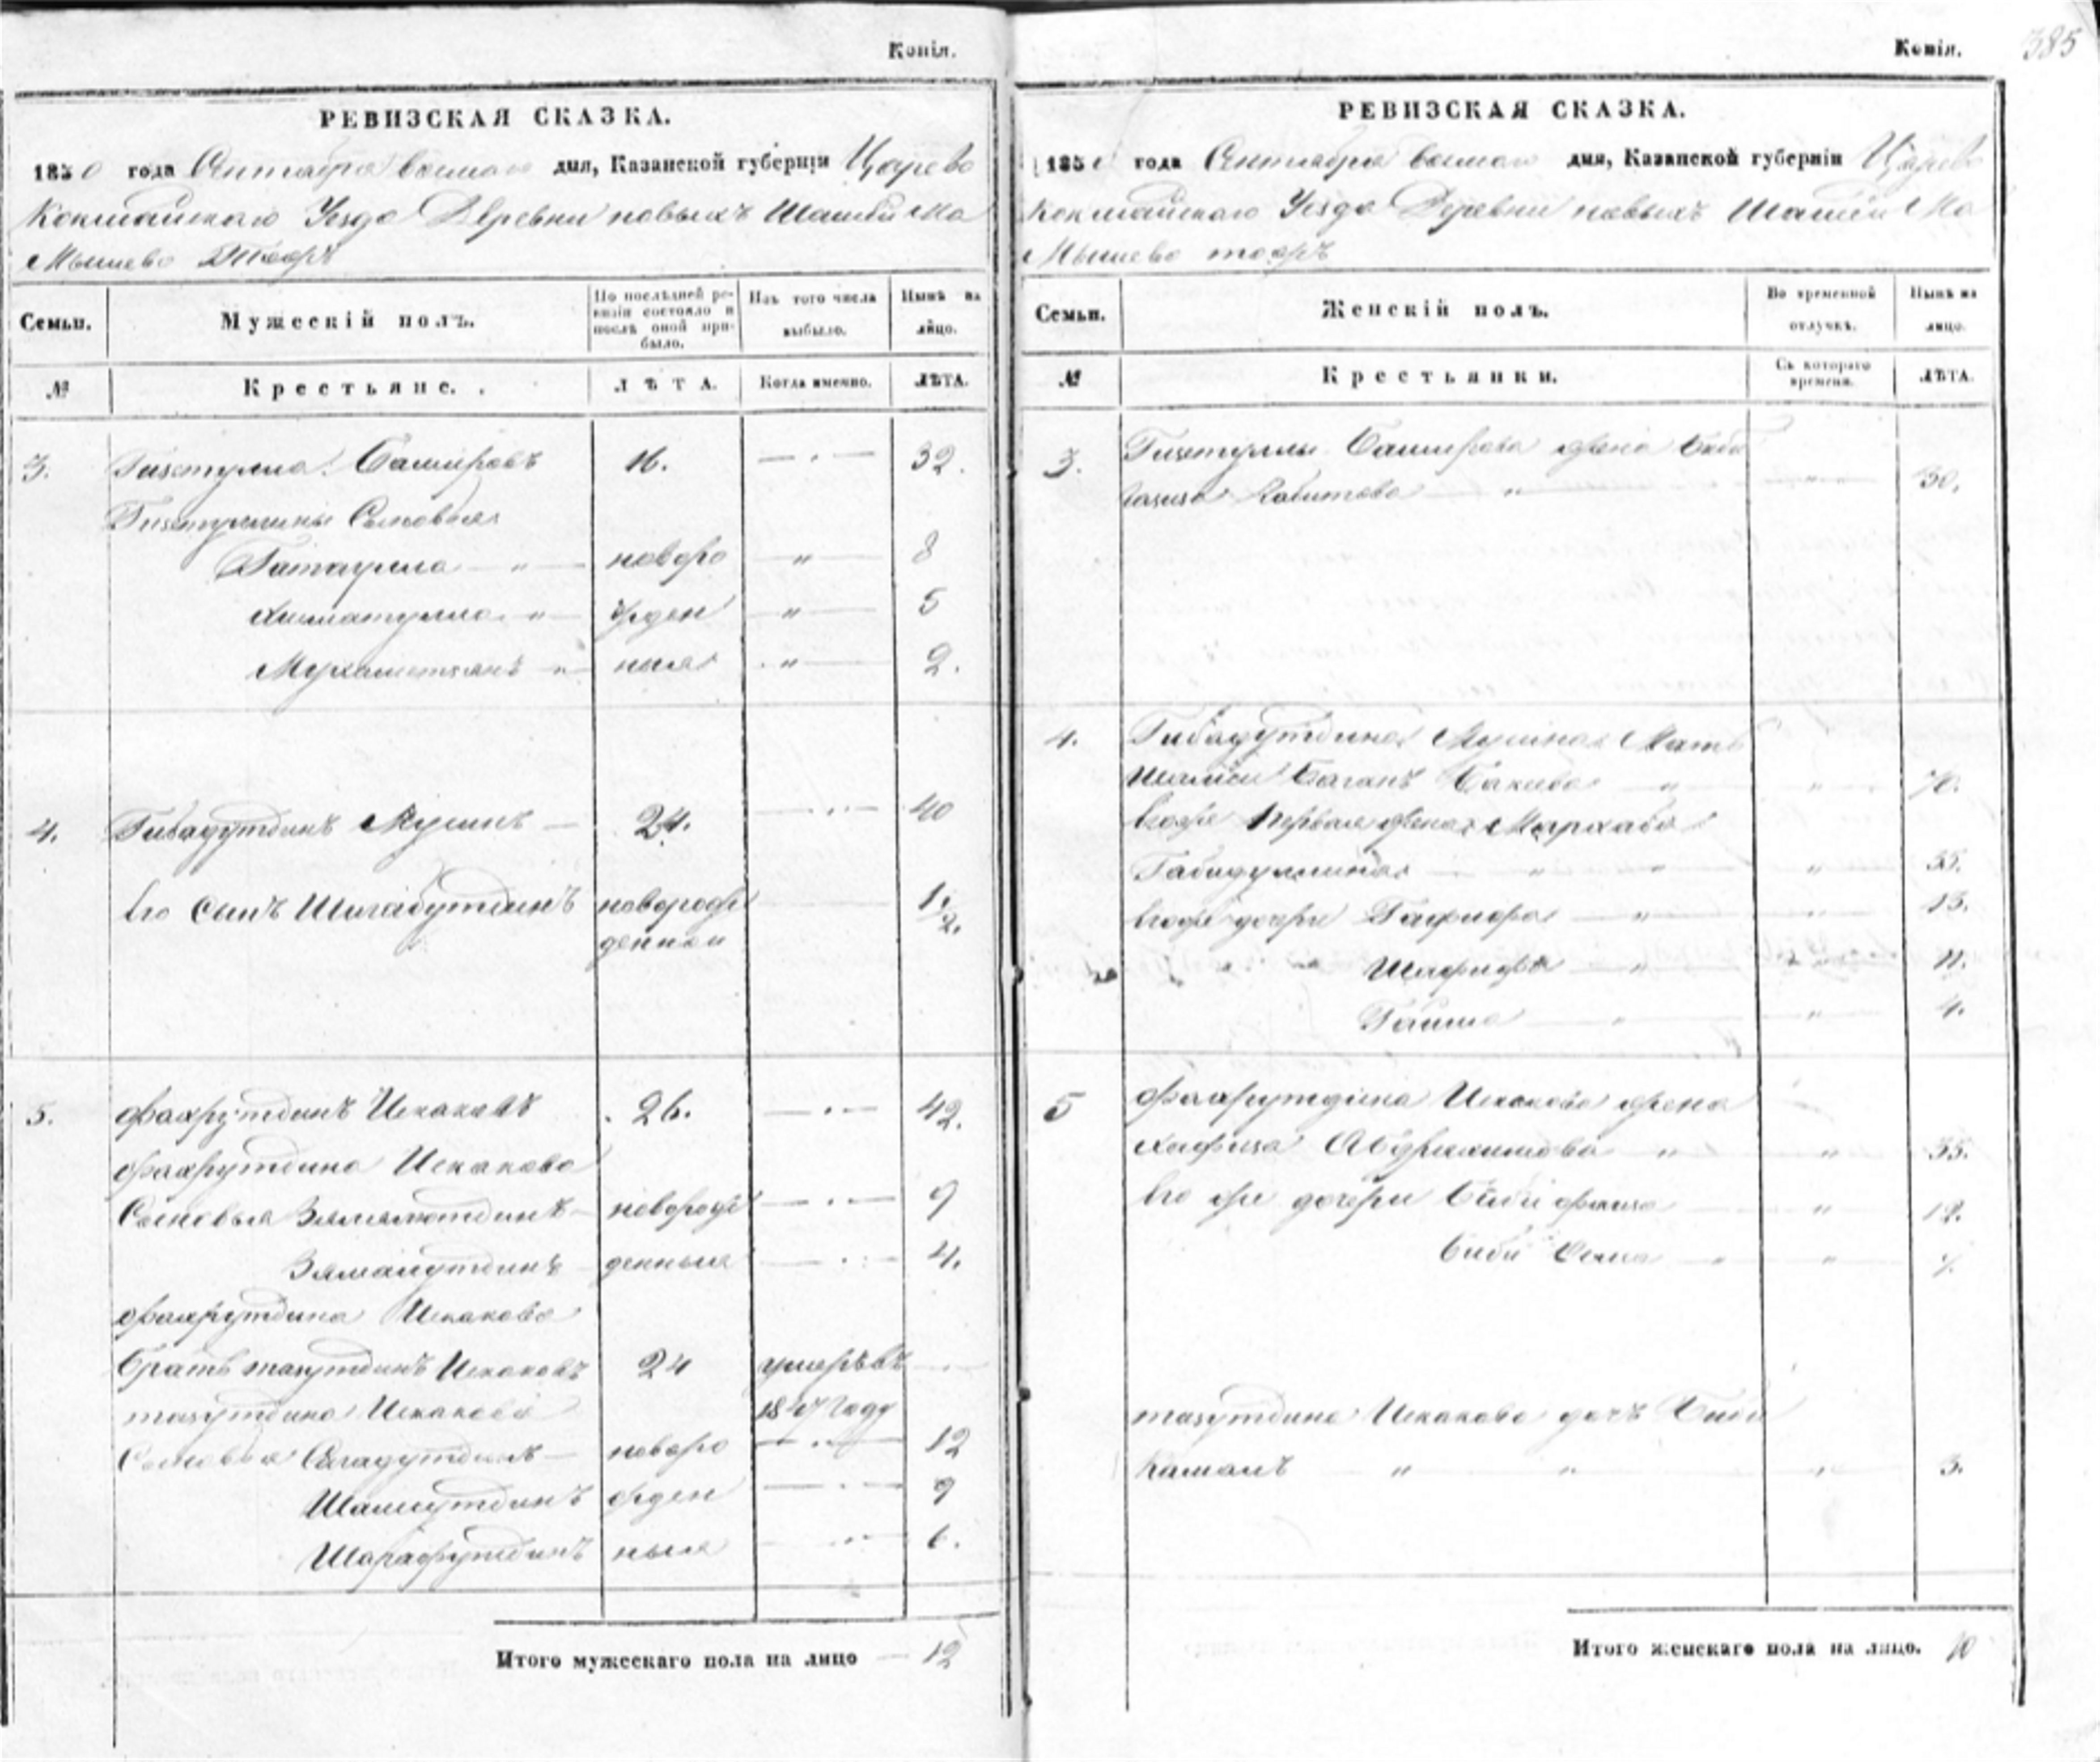 Копія.
РЕВИЗСКАЯ СКАЗКА.
1850 года Сентября дня, Казанской губерніи Царево
Кокшайскаго Уезда Деревни новыхъ
Мужескій полъ.
Семьи.
По послѣдней ревизіи состояло и послѣ оной прибыло.
Изъ того числа выбыло.
Нынѣ на лицо.
№
Крестьяне.
ЛѢТА.
Когда именно.
ЛѢТА.
3. Гизетулла Башировъ 16. 32.
Гизетуллины Сыновья
Гатаулла " новоро " 8
Хисматулла " жден " 5
Мухаметзянъ " ныя " 2.
4. Гибадутдинъ Мушинъ 24. 40
Его Сынъ Шигабутдинъ новорож 1/2.
денной
5. Фахрутдинъ Искаковъ 26. 42.
Фахрутдина Искакова
Сыновья Зялялютдинъ новорож 9
денныя 4.
Фахрутдина Искакова
братъ тазутдинъ Искаковъ 24 умеръ въ
тазутдина Искакова 1847 году
Сыновья новоро 12
Шамсутдинъ жден 9
Шарафутдинъ ныя 6.
Итого мужескаго пола на лицо 12
Копія. 385
РЕВИЗСКАЯ СКАЗКА.
1850 года Сентября дня, Казанской губерніи Царево
Кокшайскаго Уезда Деревни новыхъ
Семьи.
Женскій полъ.
Во временной отлучкѣ.
Нынѣ на лицо.
№
Крестьянки.
Съ котораго времени.
ЛѢТА.
3. Гизетуллы Баширова жена Биби
" 30.
4. Гибадутдина Мушина Мать
" " 70.
Его же первая жена Мархаба
Габидуллина " " " 35.
Его же дочери " " 13.
" " 11.
" " 4.
5 Фахрутдина Искакова жена
Хафиза " " 35.
Его же дочери Биби " 12.
Биби " " 7.
тазутдина Искакова дочь Биби
Камалъ " " " 3.
Итого женскаго пола на лицо. 10